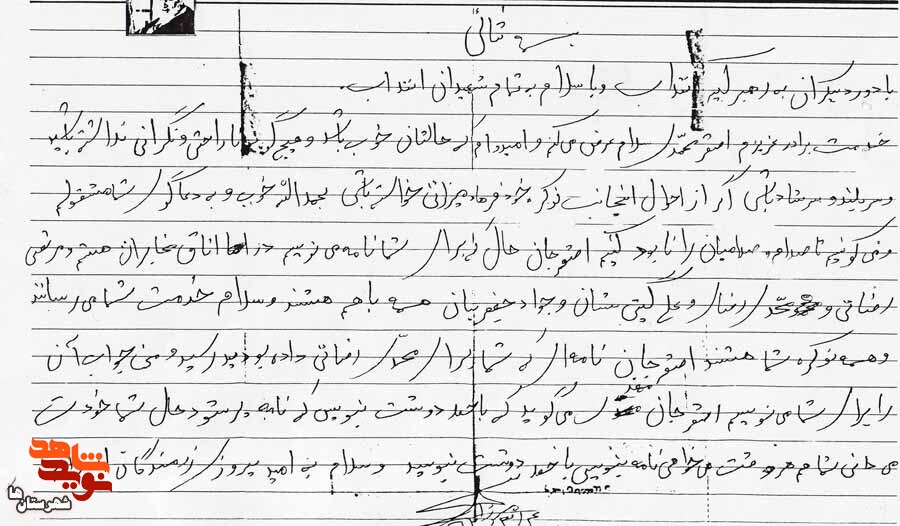 بسمه تعالی
با درود بیکران به رهبر کبیر انقلاب و با سلام به تمام شهیدان انقلاب.
خدمت برادر عزیزم اصغر محمدی سلام عرض می‌کنم و امیدوارم که حالتان خوب باشد و هیچ گونه ناراحتی و نگرانی نداشته باشید
و سربلند و سرشاد باشی اگر از احوال اینجانب نوکره خود فرهاد میرزائی خواسته باشی بحمدالله خوب و به دعاگوی شما مشغولم
و می‌کوشیم تا صدام و صدامیان را نابود کنیم اصغر جان حال که برای شما نامه می‌نویسم در اتاق مخابران هستم و مرتضی
رضائی و محمد رضا و علی گیتی ستان و جواد جعفریان همه با هم هستند و سلام خدمت شما می‌رسانند
و همه نوکره شما هستند اصغر جان نامه‌ای که شما برای محمد رضائی داده بودید رسید و منی جواب آن
را برای شما می‌نویسم اصغر جان می‌گوید که با خط درشت بنویس که نامه پر شود حال شما خودت
می‌دانی شما هم هر وقت می‌خواهی نامه بنویسی با خط درشت بنویسید و سلام به امید پیروزی رزمندگان
نوید شاهد
شهرستان ها